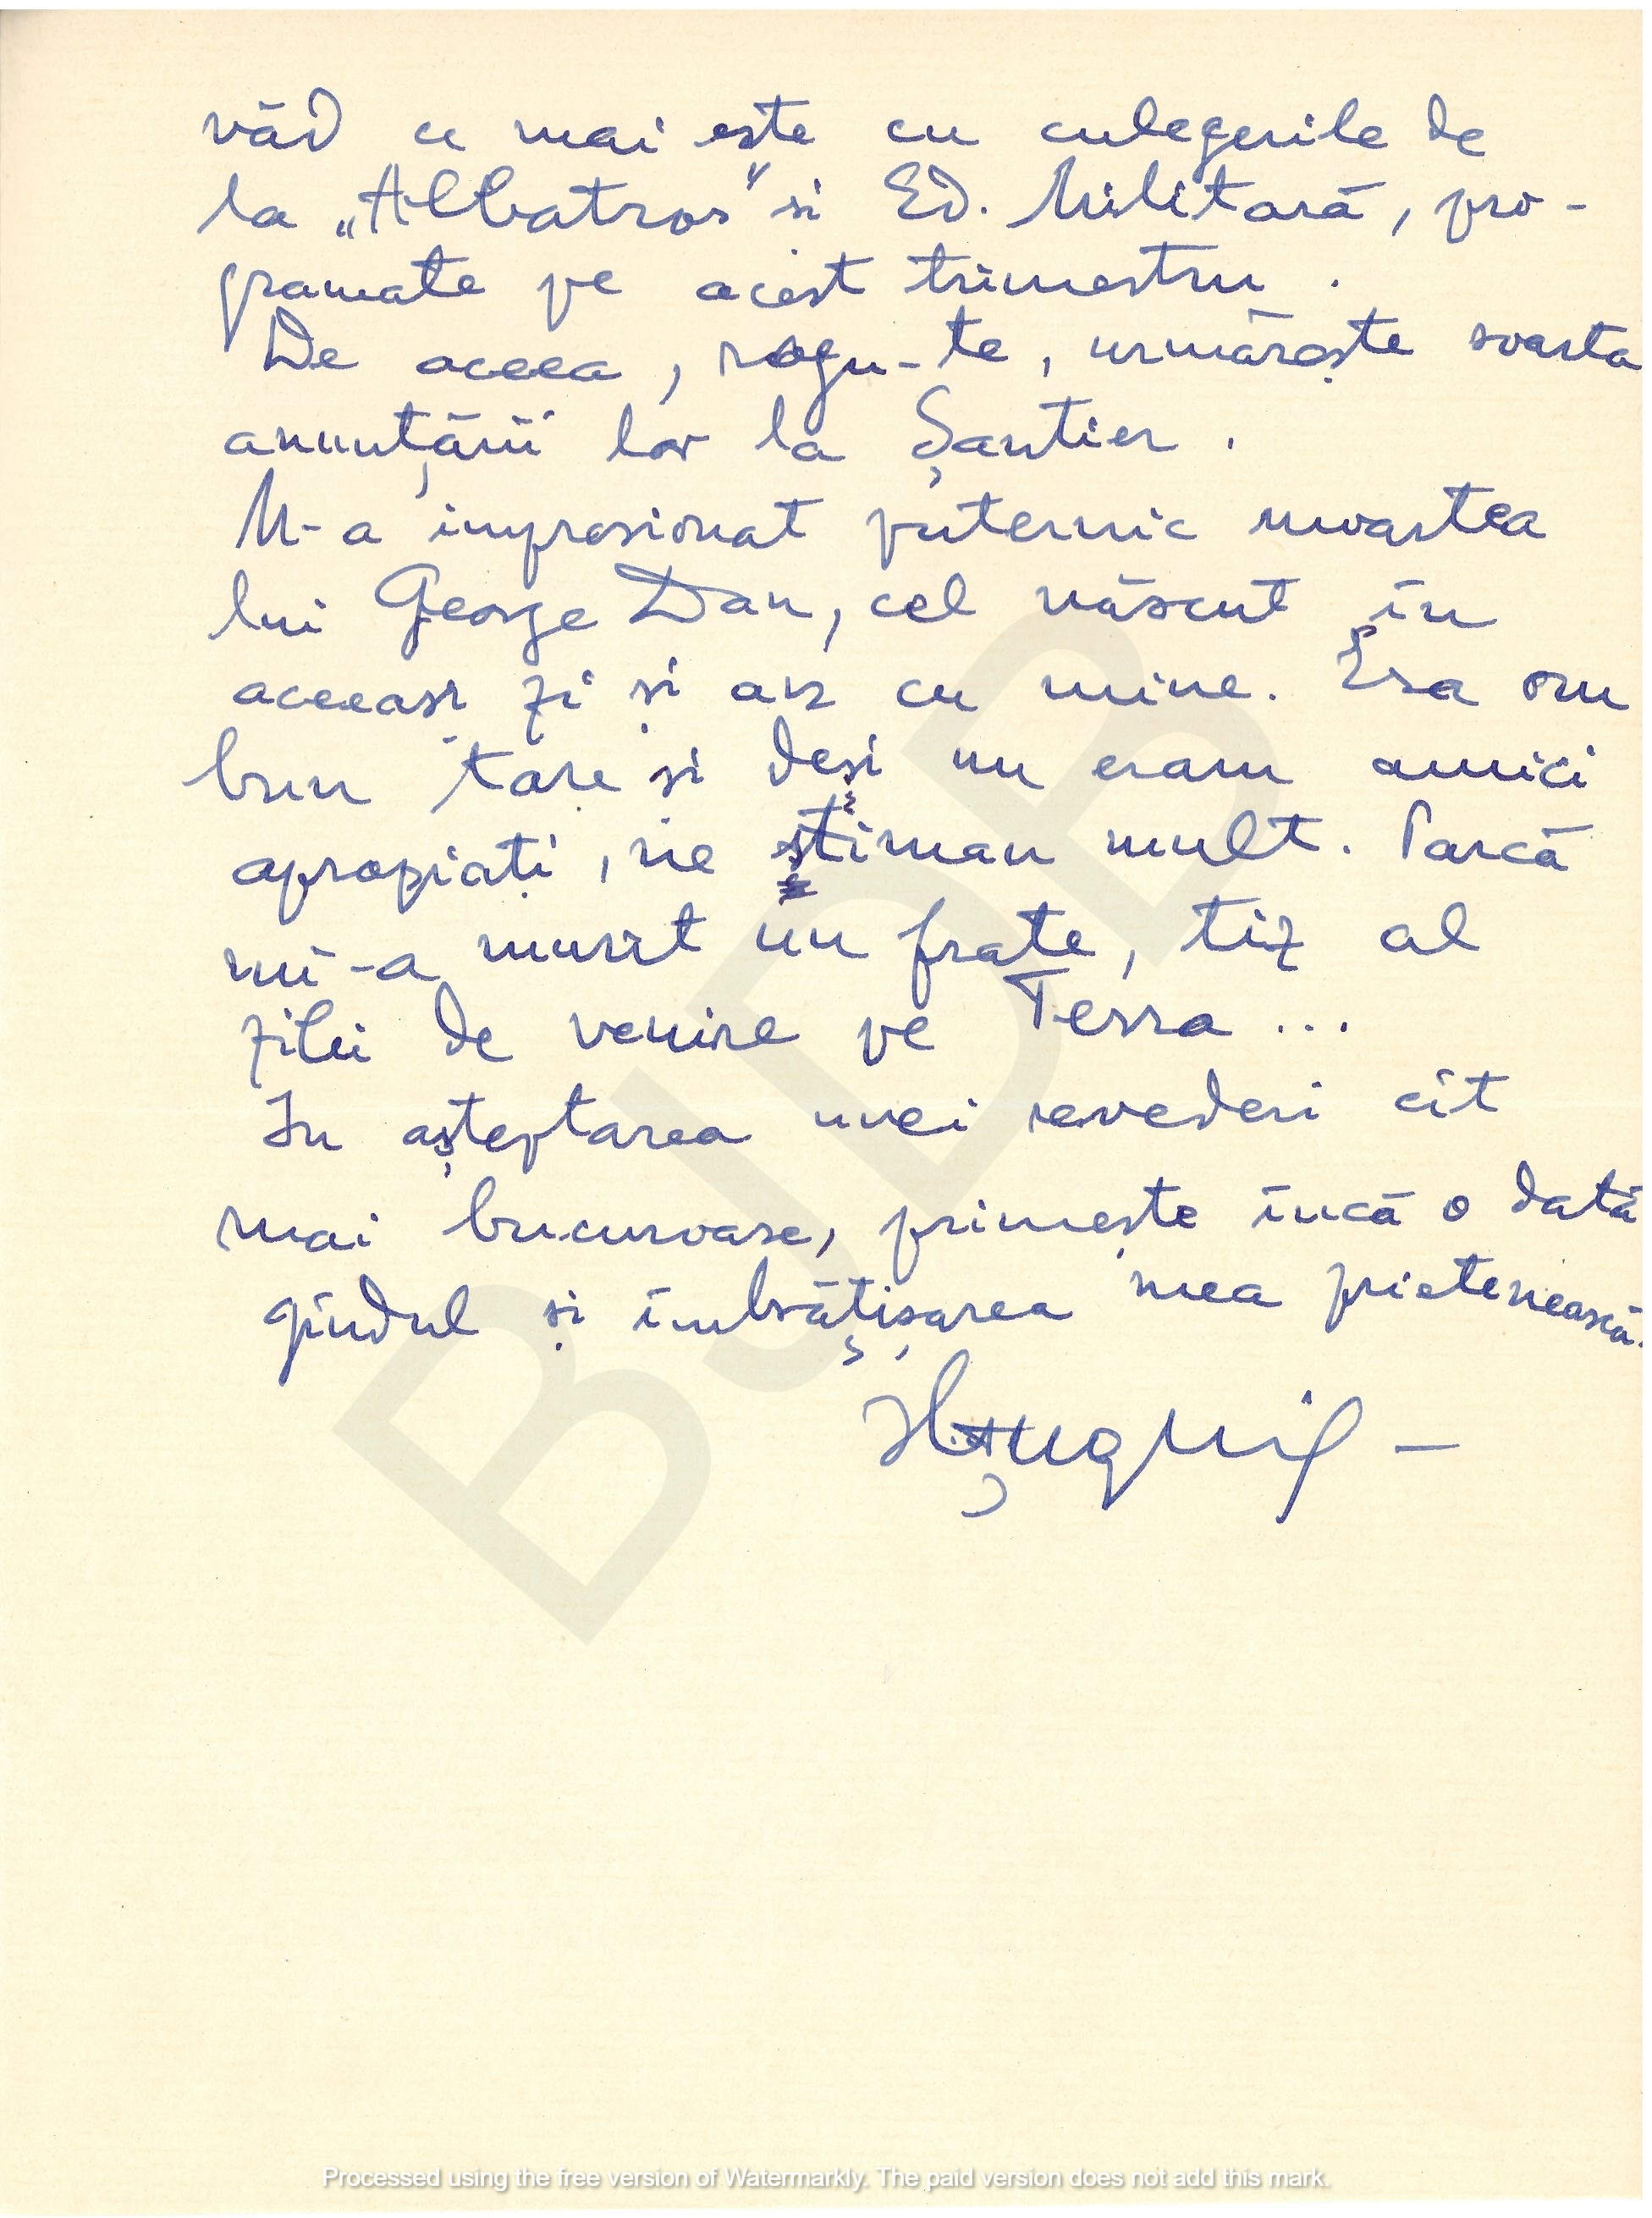 văd ce mai este cu culegerile de
la „Albatros” si Ed. Militară, pro-
gramate pe acest trimestru.
De aceea, rogu-te, urmărește soarta
anunțării lor la Șantier.
M-a impresionat puternic moartea
lui George Dan, cel născut în
aceeasi zi și an cu mine. Era om
bun tare și deși nu eram amici
apropiați, ne stimam mult. Parcă
mi-a murit un frate, tiz al
zilei de venire pe Terra...
In așteptarea unei revederi cît
mai bucuroase, primește încă o dată
gîndul și îmbrățișarea mea prietenească.
BJDB
Processed using the free version of Watermarkly. The paid version does not add this mark.